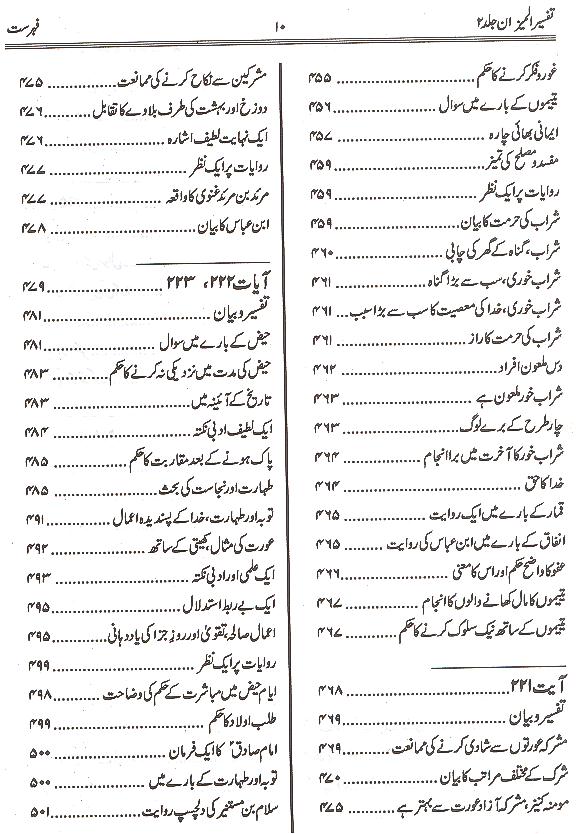 تفسیر المیزان جلد ۲
۱۰
فہرست
غور و فکر کرنے کا حکم ۴۵۵
یتیموں کے بارے میں سوال ۴۵۶
ایمانی بھائی چارہ ۴۵۷
مفسد و مصلح کی تمیز ۴۵۹
روایات پر ایک نظر ۴۵۹
شراب کی حرمت کا بیان ۴۵۹
شراب، گناہ کے گھر کی چابی ۴۶۰
شراب خوری، سب سے بڑا گناہ ۴۶۱
شراب خوری، خدا کی معصیت کا سب سے بڑا سبب ۴۶۱
شراب کی حرمت کا راز ۴۶۱
دس ملعون افراد ۴۶۲
شراب خور ملعون ہے ۴۶۳
چار طرح کے برے لوگ ۴۶۳
شراب خور کا آخرت میں برا انجام ۴۶۴
خدا کا حق ۴۶۴
قمار کے بارے میں ایک روایت ۴۶۵
انفاق کے بارے میں ابن عباس کی روایت ۴۶۵
عفو کا واضح حکم اور اس کا معنی ۴۶۶
یتیموں کا مال کھانے والوں کا انجام ۴۶۷
یتیموں کے ساتھ نیک سلوک کرنے کا حکم ۴۶۷
آیت ۲۲۱ ۴۶۸
تفسیر و بیان ۴۶۹
مشرکہ عورتوں سے شادی کرنے کی ممانعت ۴۶۹
شرک کے مختلف مراتب کا بیان ۴۷۰
مومنہ کنیز، مشرکہ آزاد عورت سے بہتر ہے ۴۷۵
مشرکین سے نکاح کرنے کی ممانعت ۴۷۵
دوزخ اور بہشت کی طرف بلاوے کا تقابل ۴۷۶
ایک نہایت لطیف اشارہ ۴۷۶
روایات پر ایک نظر ۴۷۷
مرثد بن مرثد غنوی کا واقعہ ۴۷۷
ابن عباس کا بیان ۴۷۸
آیات ۲۲۲، ۲۲۳ ۴۷۹
تفسیر و بیان ۴۸۱
حیض کے بارے میں سوال ۴۸۱
حیض کی مدت میں نزدیکی نہ کرنے کا حکم ۴۸۳
تاریخ کے آئینہ میں ۴۸۳
ایک لطیف ادبی نکتہ ۴۸۴
پاک ہونے کے بعد مقاربت کا حکم ۴۸۵
طہارت اور نجاست کی بحث ۴۸۵
توبہ اور طہارت، خدا کے پسندیدہ اعمال ۴۹۱
عورت کی مثال، کھیتی کے ساتھ ۴۹۲
ایک علمی اور ادبی نکتہ ۴۹۳
ایک بے ربط استدلال ۴۹۵
اعمال صالحہ، تقویٰ اور روزِ جزا کی یاد دہانی ۴۹۵
روایات پر ایک نظر ۴۹۹
ایام حیض میں مباشرت کے حکم کی وضاحت ۴۹۸
طلب اولاد کا حکم ۴۹۹
امام صادقؑ کا ایک فرمان ۵۰۰
توبہ اور طہارت کے بارے میں ۵۰۰
سلام بن مستنیر کی دلچسپ روایت ۵۰۱